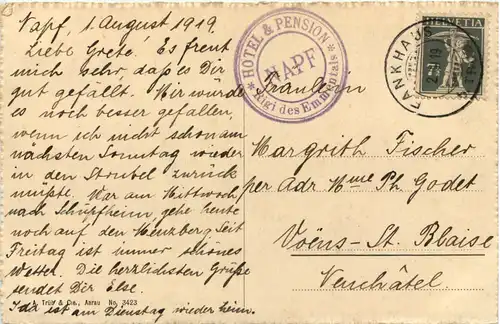 Napf, 1. August 1919.
Liebe Grete! Es freut
mich sehr, daß es Dir
gut gefällt. Mir wurde
es noch besser gefallen,
wenn ich nicht schon am
nächsten Sonntag wieder
in den Strubel zurück
müßte. War am Mittwoch
nach Schüpfheim, gehe heute
noch auf den Menzberg. Seit
Freitag ist immer schönes
Wetter. Die herzlichsten Grüße
sendet Dir Else.
Ida ist am Dienstag wieder heim.
A. Trüb & Cie., Aarau No. 3423
* HOTEL & PENSION *
NAPF
Rigi des Emmentals
HELVETIA
7½
FANKHAUS
Fräulein
Margrith Fischer
per Adr Mme Ph. Godet
Voëns-St. Blaise
Neuchâtel